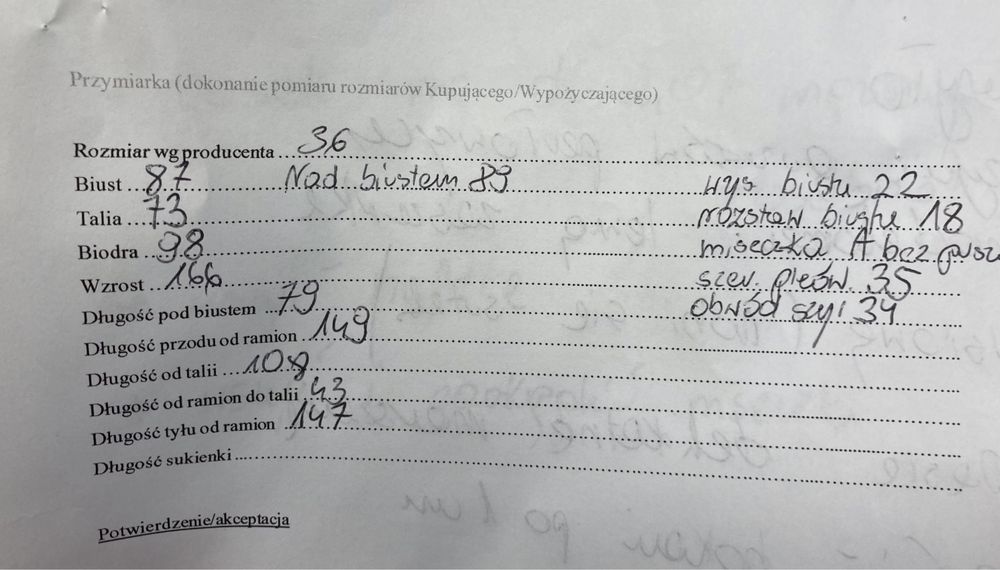 Przymiarka (dokonanie pomiaru rozmiarów Kupującego/Wypożyczającego)
Rozmiar wg producenta 36
Biust 87 Nad biustem 89 wys biustu 22
Talia 73 rozstaw biustu 18
Biodra 98 miseczka A bez
Wzrost 166 szer. pleców 35
Długość pod biustem 79 obwód szyi 34
Długość przodu od ramion 149
Długość od talii 108
Długość od ramion do talii 43
Długość tyłu od ramion 147
Długość sukienki
Potwierdzenie/akceptacja